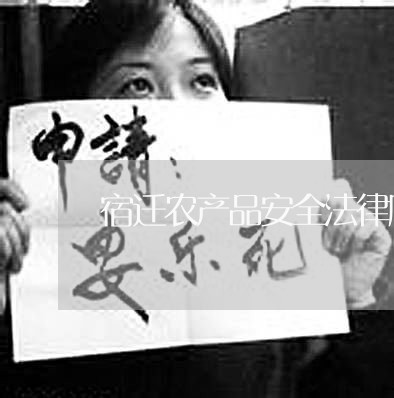 申請：
宿迁农产品安全法律
安乐死